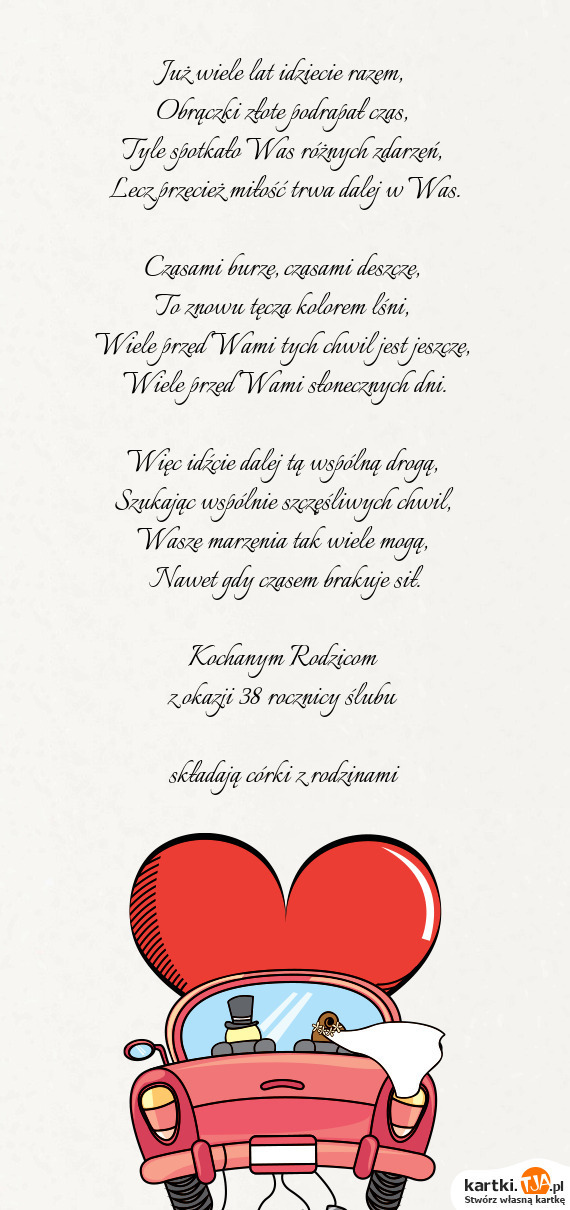 Już wiele lat idziecie razem,
Obrączki złote podrapał czas,
Tyle spotkało Was różnych zdarzeń,
Lecz przecież miłość trwa dalej w Was.
Czasami burze, czasami deszcze,
To znowu tęcza kolorem lśni,
Wiele przed Wami tych chwil jest jeszcze,
Wiele przed Wami słonecznych dni.
Więc idźcie dalej tą wspólną drogą,
Szukając wspólnie szczęśliwych chwil,
Wasze marzenia tak wiele mogą,
Nawet gdy czasem brakuje sił.
Kochanym Rodzicom
z okazji 38 rocznicy ślubu
składają córki z rodzinami
kartki.TJA.pl
Stwórz własną kartkę